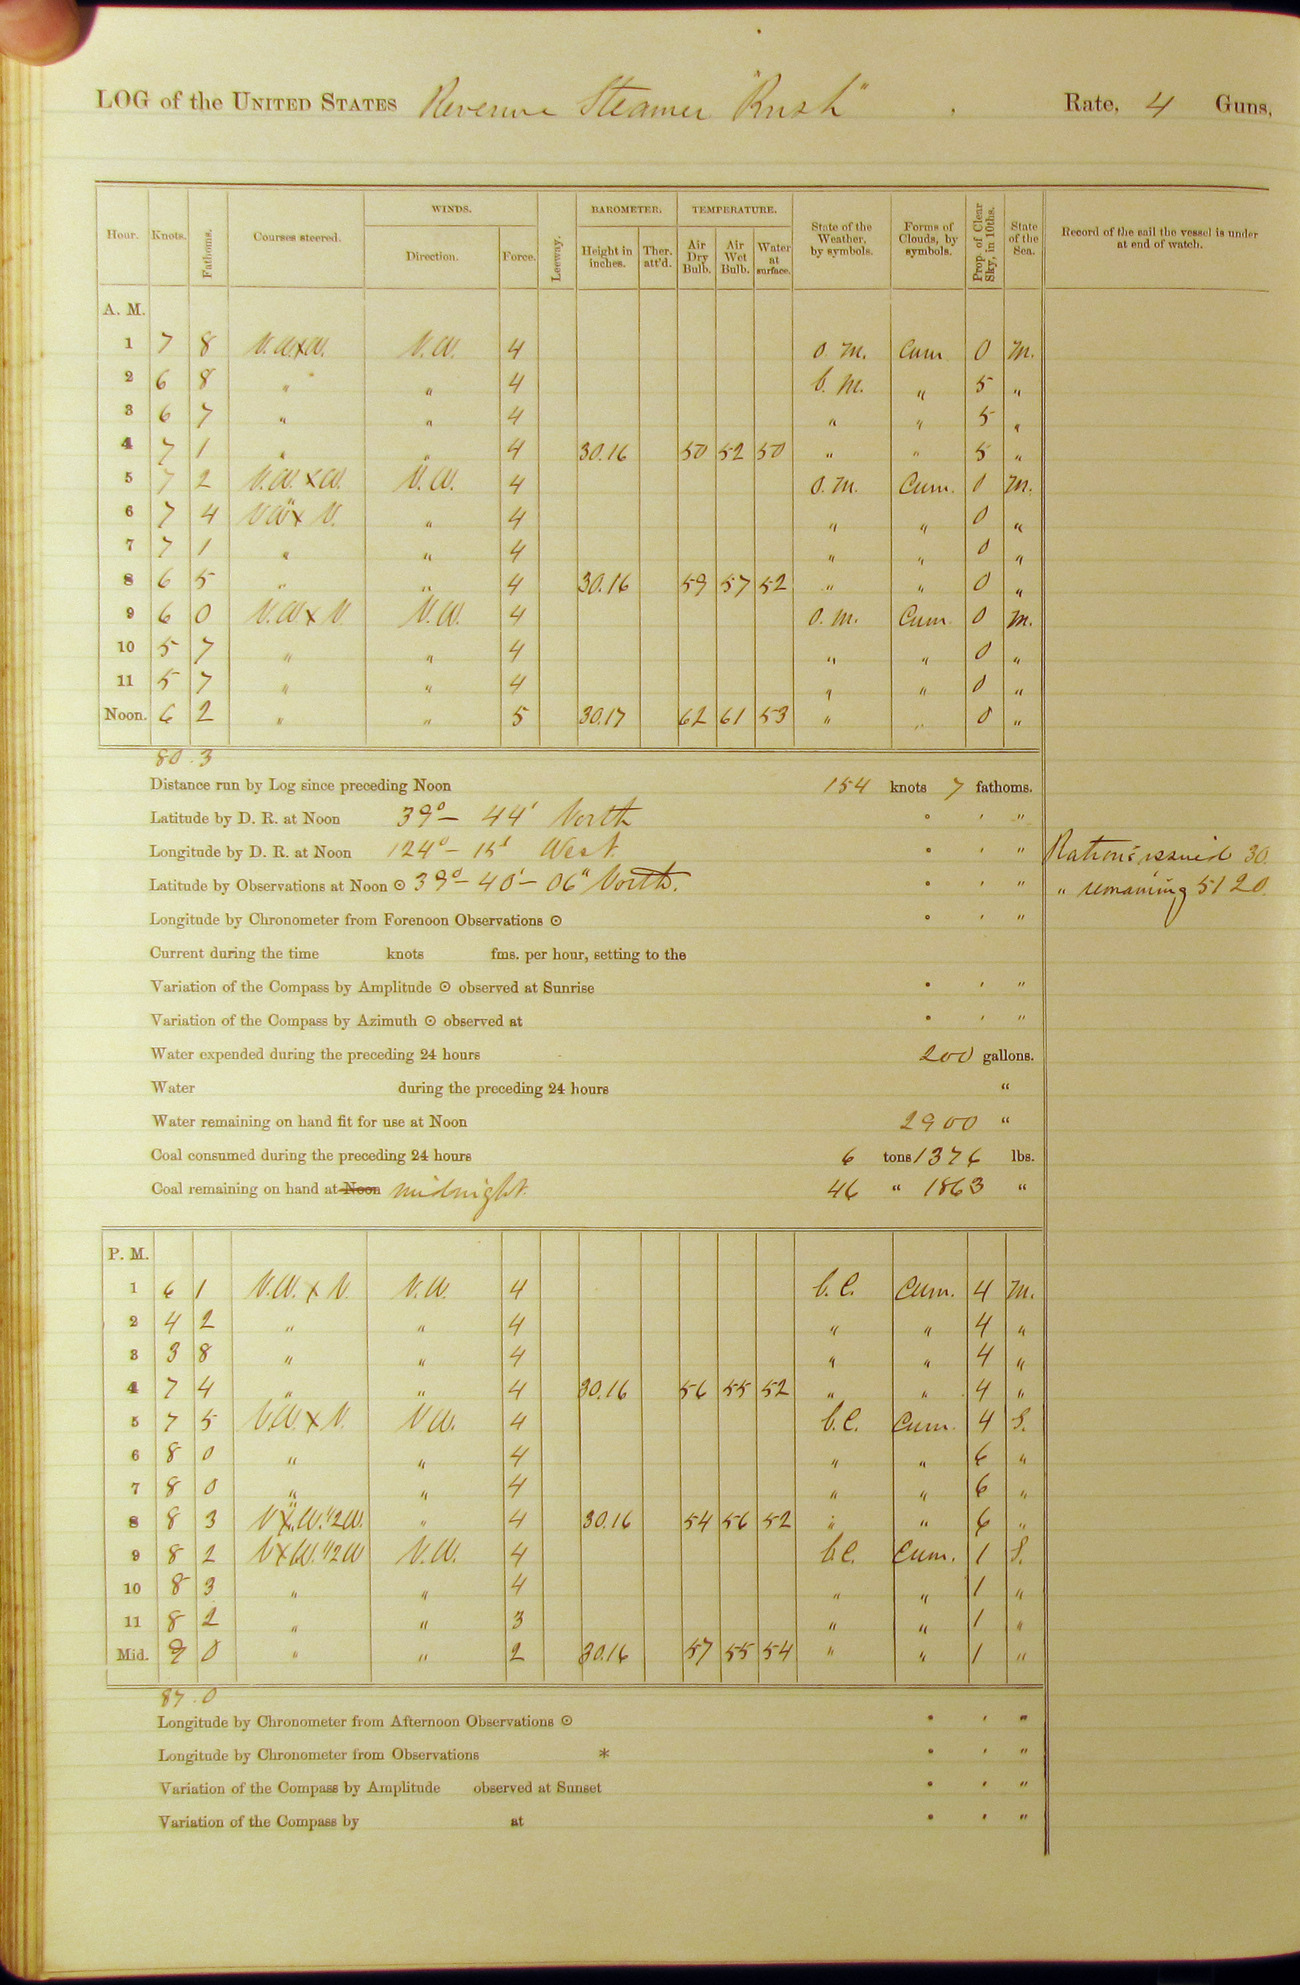 LOG of the UNITED STATES Revenue Steamer "Rush" . Rate, 4 Guns,
Hour. Knots. Fathoms. Courses steered. WINDS. Direction. Force. Leeway. BAROMETER. Height in inches. Ther. att'd. TEMPERATURE. Air Dry Bulb. Air Wet Bulb. Water at surface. State of the Weather, by symbols. Forms of Clouds, by symbols. Prop. of Clear Sky, in 10ths. State of the Sea. Record of the sail the vessel is under at end of watch.
A. M.
1 7 8 N.W.xW. N.W. 4 o. m. Cum 0 M.
2 6 8 " " 4 b. m. " 5 "
3 6 7 " " 4 " " 5 "
4 7 1 " " 4 30.16 50 52 50 " " 5 "
5 7 2 N.W.xW. N.W. 4 o. m. Cum. 0 M.
6 7 4 N.W x N. " 4 " " 0 "
7 7 1 " " 4 " " 0 "
8 6 5 " " 4 30.16 59 57 52 " " 0 "
9 6 0 N.W x N N.W. 4 o. m. Cum. 0 M.
10 5 7 " " 4 " " 0 "
11 5 7 " " 4 " " 0 "
Noon. 6 2 " " 5 30.17 62 61 53 " " 0 "
80 . 3
Distance run by Log since preceding Noon 154 knots 7 fathoms.
Latitude by D. R. at Noon 39° – 44' North ° ' "
Longitude by D. R. at Noon 124° – 15' West. ° ' " Rations issued 30.
Latitude by Observations at Noon ⊙ 39° – 40' – 06" North. ° ' " " remaining 5120.
Longitude by Chronometer from Forenoon Observations ⊙ ° ' "
Current during the time knots fms. per hour, setting to the
Variation of the Compass by Amplitude ⊙ observed at Sunrise ° ' "
Variation of the Compass by Azimuth ⊙ observed at ° ' "
Water expended during the preceding 24 hours 200 gallons.
Water during the preceding 24 hours "
Water remaining on hand fit for use at Noon 2900 "
Coal consumed during the preceding 24 hours 6 tons 1376 lbs.
Coal remaining on hand at Noon midnight. 46 " 1863 "
P. M.
1 6 1 N.W. x N. N.W. 4 b. c. Cum. 4 M.
2 4 2 " " 4 " " 4 "
3 3 8 " " 4 " " 4 "
4 7 4 " " 4 30.16 56 55 52 " " 4 "
5 7 5 N.W. x N. N.W. 4 b. c. Cum. 4 S.
6 8 0 " " 4 " " 6 "
7 8 0 " " 4 " " 6 "
8 8 3 N x W. 1/2 W. " 4 30.16 54 56 52 " " 6 "
9 8 2 N x W. 1/2 W N.W. 4 b c. Cum. 1 S.
10 8 3 " " 4 " " 1 "
11 8 2 " " 3 " " 1 "
Mid. 9 0 " " 2 30.16 57 55 54 " " 1 "
87 . 0
Longitude by Chronometer from Afternoon Observations ⊙ ° ' "
Longitude by Chronometer from Observations * ° ' "
Variation of the Compass by Amplitude observed at Sunset ° ' "
Variation of the Compass by at ° ' "